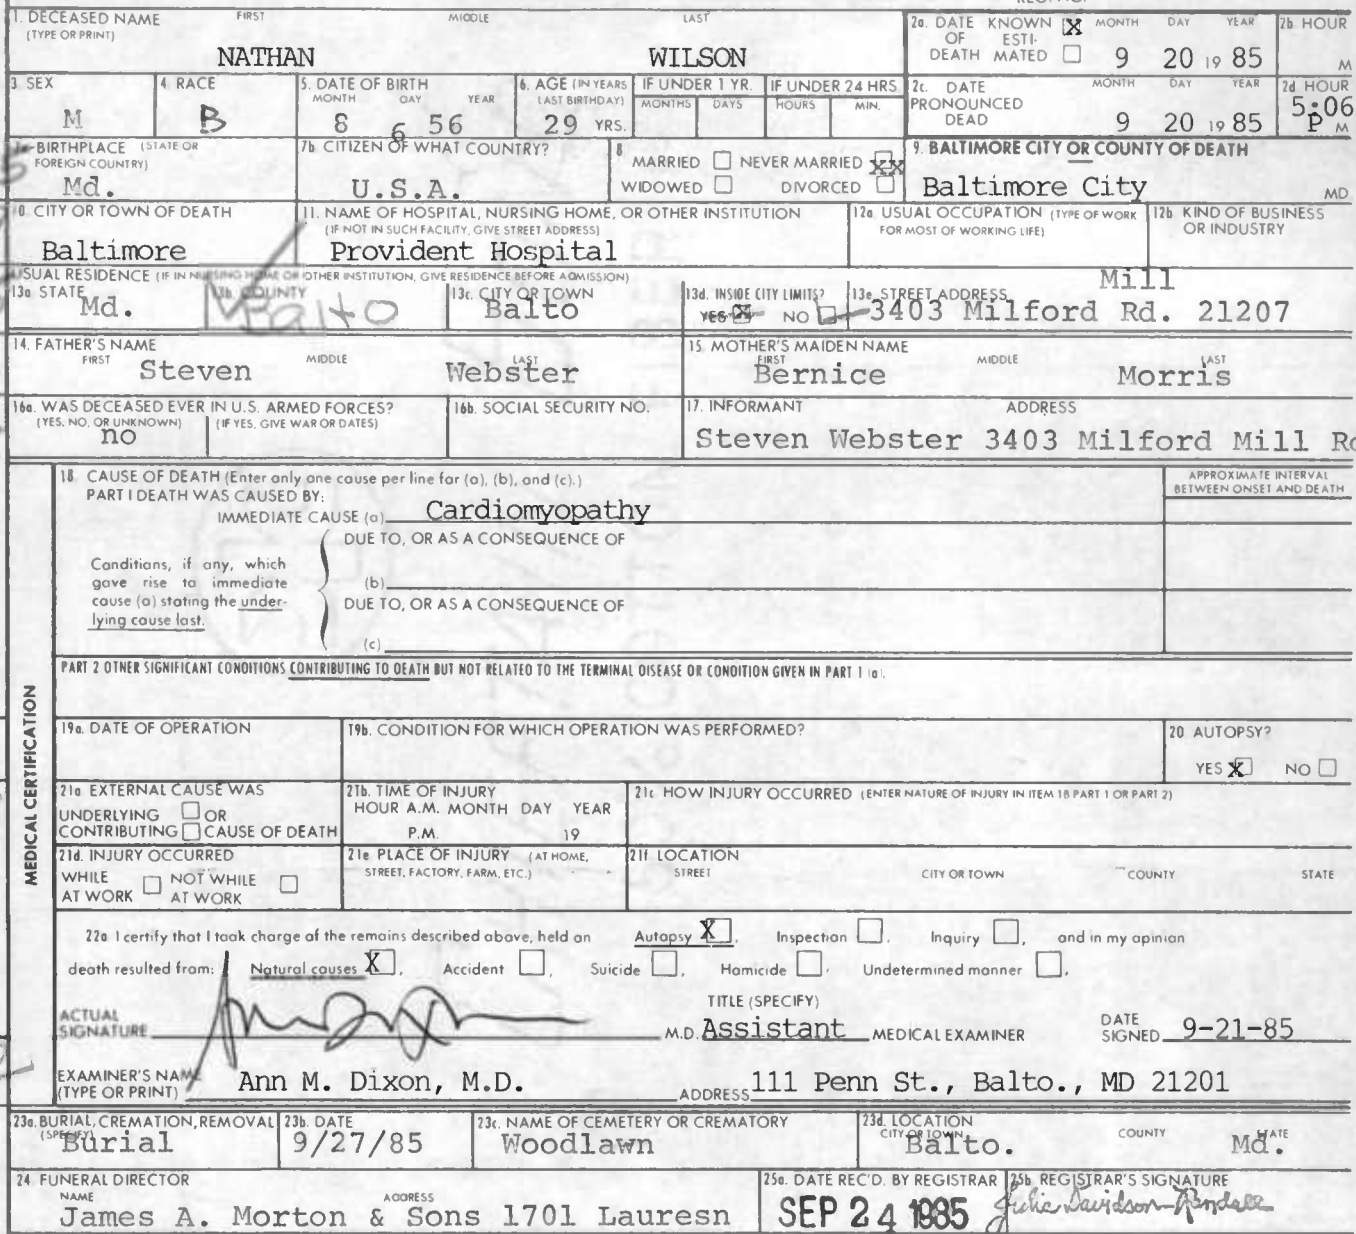 1. DECEASED NAME FIRST MIDDLE LAST
(TYPE OR PRINT)
NATHAN WILSON
2a. DATE KNOWN X MONTH DAY YEAR
OF ESTI-
DEATH MATED 9 20 19 85
2b. HOUR
M
3 SEX
M
4 RACE
B
5. DATE OF BIRTH
MONTH DAY YEAR
8 6 56
6. AGE (IN YEARS
LAST BIRTHDAY)
29 YRS.
IF UNDER 1 YR.
MONTHS DAYS
IF UNDER 24 HRS
HOURS MIN.
2c. DATE MONTH DAY YEAR
PRONOUNCED
DEAD 9 20 19 85
2d HOUR
5:06
P M
BIRTHPLACE (STATE OR
FOREIGN COUNTRY)
Md.
7b CITIZEN OF WHAT COUNTRY?
U.S.A.
8
MARRIED NEVER MARRIED XX
WIDOWED DIVORCED
9. BALTIMORE CITY OR COUNTY OF DEATH
Baltimore City MD
0. CITY OR TOWN OF DEATH
Baltimore
11. NAME OF HOSPITAL, NURSING HOME, OR OTHER INSTITUTION
(IF NOT IN SUCH FACILITY, GIVE STREET ADDRESS)
Provident Hospital
12a USUAL OCCUPATION (TYPE OF WORK
FOR MOST OF WORKING LIFE)
12b KIND OF BUSINESS
OR INDUSTRY
USUAL RESIDENCE (IF IN NURSING HOME OR OTHER INSTITUTION, GIVE RESIDENCE BEFORE ADMISSION)
13a STATE
Md.
13b. COUNTY
Balto
13c. CITY OR TOWN
Balto
13d. INSIDE CITY LIMITS?
YES X NO
13e. STREET ADDRESS
Mill
3403 Milford Rd. 21207
14. FATHER'S NAME
FIRST MIDDLE LAST
Steven Webster
15. MOTHER'S MAIDEN NAME
FIRST MIDDLE LAST
Bernice Morris
16a. WAS DECEASED EVER IN U.S. ARMED FORCES?
(YES, NO, OR UNKNOWN) (IF YES, GIVE WAR OR DATES)
no
16b. SOCIAL SECURITY NO.
17. INFORMANT ADDRESS
Steven Webster 3403 Milford Mill Rd
MEDICAL CERTIFICATION
18. CAUSE OF DEATH (Enter only one cause per line for (a), (b), and (c).)
PART I DEATH WAS CAUSED BY:
IMMEDIATE CAUSE (a) Cardiomyopathy
APPROXIMATE INTERVAL
BETWEEN ONSET AND DEATH
DUE TO, OR AS A CONSEQUENCE OF
Conditions, if any, which
gave rise to immediate
cause (a) stating the under-
lying cause last.
(b)
DUE TO, OR AS A CONSEQUENCE OF
(c)
PART 2 OTHER SIGNIFICANT CONDITIONS CONTRIBUTING TO DEATH BUT NOT RELATED TO THE TERMINAL DISEASE OR CONDITION GIVEN IN PART 1 (a).
19a. DATE OF OPERATION
19b. CONDITION FOR WHICH OPERATION WAS PERFORMED?
20 AUTOPSY?
YES X NO
21a EXTERNAL CAUSE WAS
UNDERLYING OR
CONTRIBUTING CAUSE OF DEATH
21b. TIME OF INJURY
HOUR A.M. MONTH DAY YEAR
P.M. 19
21c HOW INJURY OCCURRED (ENTER NATURE OF INJURY IN ITEM 18 PART 1 OR PART 2)
21d. INJURY OCCURRED
WHILE NOT WHILE
AT WORK AT WORK
21e PLACE OF INJURY (AT HOME,
STREET, FACTORY, FARM, ETC.)
21f LOCATION
STREET CITY OR TOWN COUNTY STATE
22a I certify that I took charge of the remains described above, held an Autopsy X, Inspection , Inquiry , and in my opinion
death resulted from: Natural causes X, Accident , Suicide , Homicide , Undetermined manner .
ACTUAL
SIGNATURE
TITLE (SPECIFY)
M.D. Assistant MEDICAL EXAMINER
DATE
SIGNED 9-21-85
EXAMINER'S NAME
(TYPE OR PRINT) Ann M. Dixon, M.D.
ADDRESS 111 Penn St., Balto., MD 21201
23a. BURIAL, CREMATION, REMOVAL
(SPECIFY)
Burial
23b. DATE
9/27/85
23c. NAME OF CEMETERY OR CREMATORY
Woodlawn
23d. LOCATION
CITY OR TOWN COUNTY STATE
Balto. Md.
24 FUNERAL DIRECTOR
NAME ADDRESS
James A. Morton & Sons 1701 Lauresn
25a. DATE REC'D. BY REGISTRAR
SEP 24 1985
25b. REGISTRAR'S SIGNATURE
Julia Davidson-Randall